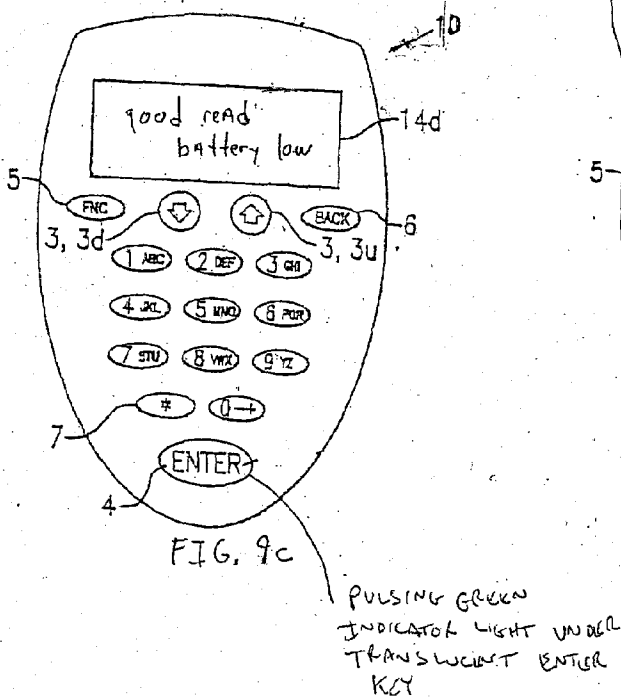 10
good read
battery low
14d
5
FNC
BACK
6
5
3, 3d
3, 3u
1 ABC 2 DEF 3 GHI
4 JKL 5 MNO 6 PQR
7 STU 8 VWX 9 YZ
7
* 0
ENTER
4
FIG. 9c
PULSING GREEN
INDICATOR LIGHT UNDER
TRANSLUCENT ENTER
KEY